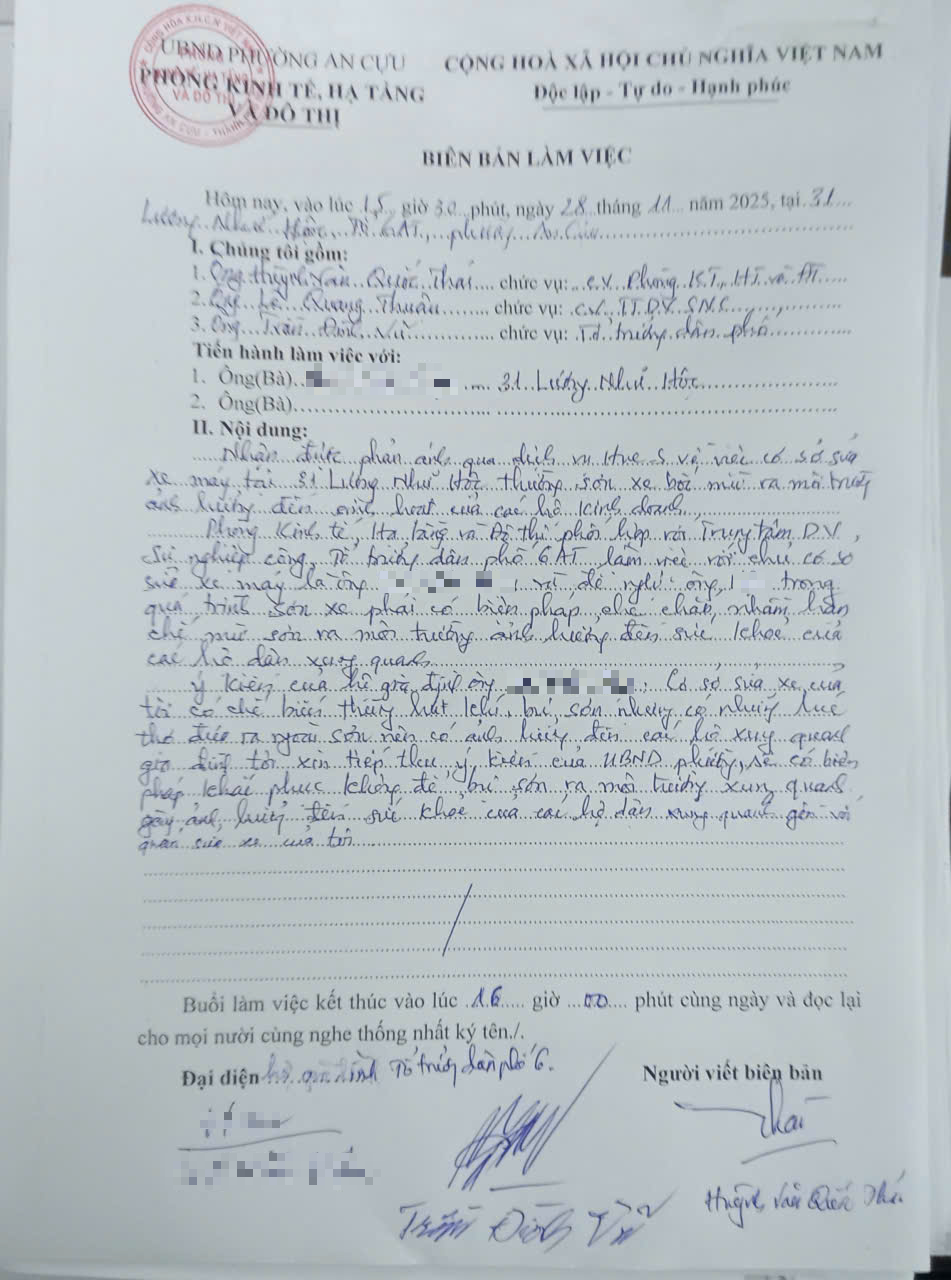 UBND PHƯỜNG AN CỰU
PHÒNG KINH TẾ, HẠ TẦNG
VÀ ĐÔ THỊ
CỘNG HOÀ XÃ HỘI CHỦ NGHĨA VIỆT NAM
Độc lập - Tự do - Hạnh phúc
BIÊN BẢN LÀM VIỆC
Hôm nay, vào lúc 15 giờ 30 phút, ngày 28 tháng 11 năm 2025, tại 31
Lương Như Hộc, Tổ 6AT, phường An Cựu
I. Chúng tôi gồm:
1. Ông Huỳnh Văn Quốc Thái chức vụ: c.v Phòng KT, HT và ĐT
2. Ông Lê Quang Thuân chức vụ: c.v TTDV SNC
3. Ông Trần Đình Vũ chức vụ: Tổ trưởng dân phố
Tiến hành làm việc với:
1. Ông(Bà) 31 Lương Như Hộc
2. Ông(Bà)
II. Nội dung:
Nhận được phản ánh qua dịch vụ Hue S về việc cơ sở sửa
xe máy tại 31 Lương Như Hộc thường sơn xe bốc mùi ra môi trường
ảnh hưởng đến sinh hoạt của các hộ kinh doanh,
Phòng Kinh tế, Hạ tầng và Đô thị phối hợp với Trung tâm DV
Sự nghiệp công, Tổ trưởng dân phố 6AT làm việc với chủ cơ sở
sửa xe máy là ông và đề nghị ông trong
quá trình sơn xe phải có biện pháp che chắn, nhằm hạn
chế mùi sơn ra môi trường ảnh hưởng đến sức khoẻ của
các hộ dân xung quanh
Ý kiến của hộ gia đình ông : Cơ sở sửa xe của
tôi có chế biến thùng hút khí, bụi sơn nhưng có những lúc
thợ đưa ra ngoài sơn nên có ảnh hưởng đến các hộ xung quanh
gia đình tôi xin tiếp thu ý kiến của UBND phường, sẽ có biện
pháp khắc phục không để bụi sơn ra môi trường xung quanh
gây ảnh hưởng đến sức khoẻ của các hộ dân xung quanh gần với
quán sửa xe của tôi
Buổi làm việc kết thúc vào lúc 16 giờ 00 phút cùng ngày và đọc lại
cho mọi nười cùng nghe thống nhất ký tên./.
Đại diện hộ gia đình Tổ trưởng dân phố 6. Người viết biên bản
Thái
Trần Đình Vũ Huỳnh Văn Quốc Thái